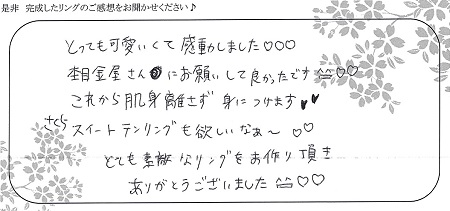 是非 完成したリングのご感想をお聞かせください♪
とっても可愛いくて感動しました♡♡♡
杢目金屋さんにお願いして良かったです^^♡♡
これから肌身離さず身につけます♥♥
さくら スイートテンリングも欲しいなぁ～♡♡
とても素敵なリングをお作り頂き
ありがとうございました^^♡♡